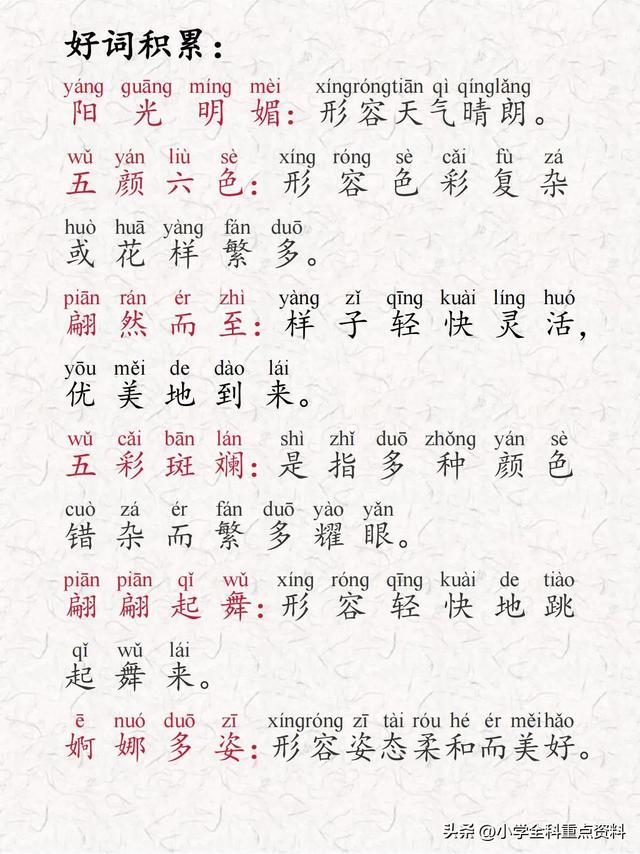 好词积累：
yáng guāng míng mèi xíngróngtiān qì qínglǎng
阳光明媚：形容天气晴朗。
wǔ yán liù sè xíng róng sè cǎi fù zá
五颜六色：形容色彩复杂
huò huā yàng fán duō
或花样繁多。
piān rán ér zhì yàng zǐ qīng kuài líng huó
翩然而至：样子轻快灵活，
yōu měi de dào lái
优美地到来。
wǔ cǎi bān lán shì zhǐ duō zhǒng yán sè
五彩斑斓：是指多种颜色
cuò zá ér fán duō yào yǎn
错杂而繁多耀眼。
piān piān qǐ wǔ xíng róng qīng kuài de tiào
翩翩起舞：形容轻快地跳
qǐ wǔ lái
起舞来。
ē nuó duō zī xíngróng zī tài róu hé ér měihǎo
婀娜多姿：形容姿态柔和而美好。
头条 @小学全科重点资料